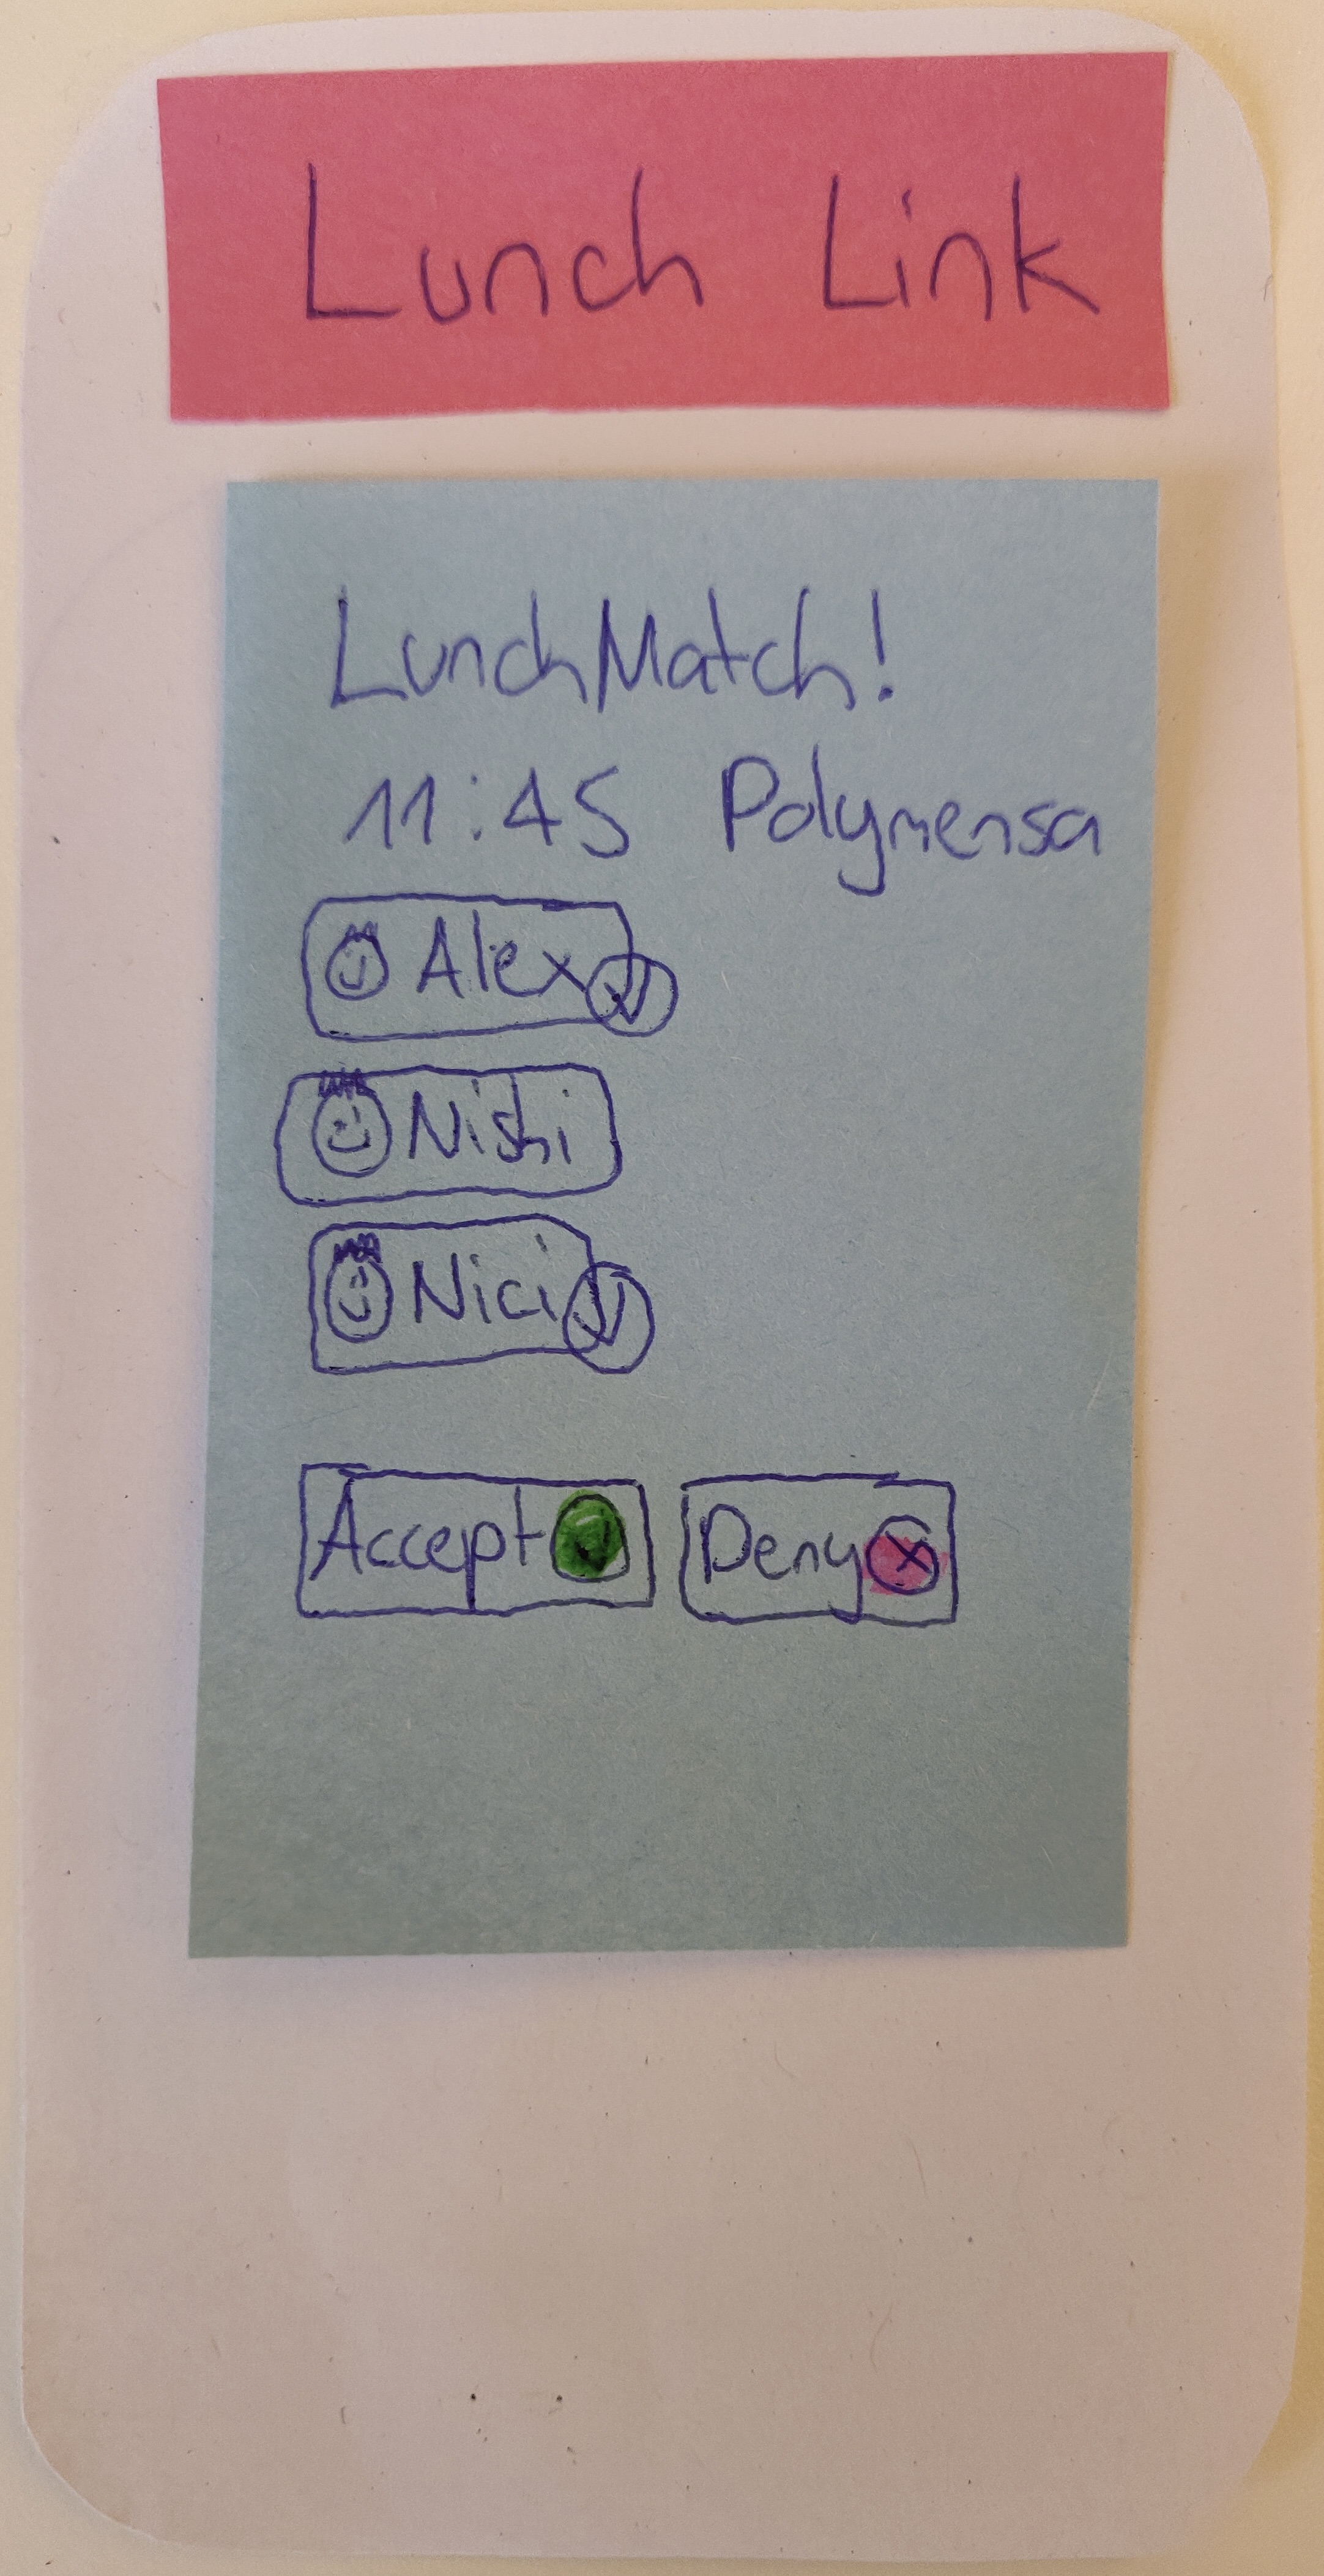 Lunch Link
LunchMatch!
11:45 Polymensa
Alex
Nishi
Nici
Accept
Deny